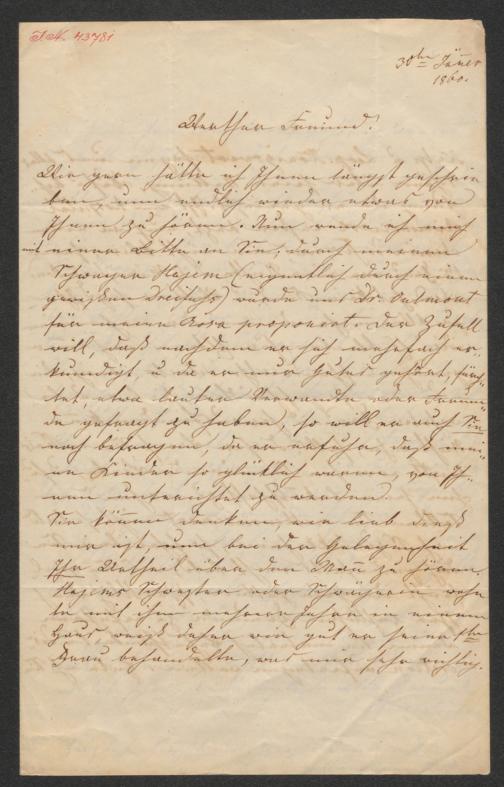 I.N. 43781
30ten Jäner
1860.
Werther Freund!
Wie gern hätte ich Ihnen längst geschrie
ben, um endlich wieder etwas von
Ihnen zu hören. Nun wende ich mich
mit einer Bitte an Sie; durch meinen
Schwager Hajim (eigentlich durch einen
gewißen Dreifuhs) wurde uns Dr. Oulmont
für meine Rosa proponirt. Der Zufall
will, daß nachdem er sich mehrfach er-
kundigt, u da er nur Gutes gehört, fürch-
tet etwa lauter Verwandte oder Freun-
de gefragt zu haben, so will er auch Sie
noch befragen, da er erfuhr, daß mei-
ne Kinder so glücklich waren, von Ih-
nen unterrichtet zu werden.
Sie können denken, wie lieb dieß
mir ist, um bei der Gelegenheit
Ihr Urtheil über den Man zu hören.
Hajims Schwester oder Schwägerin, wohn
te mit ihm mehrere Jahre in einem
Haus, weiß daher wie gut er seine 1te
Frau behandelte, was mir sehr wichtig.